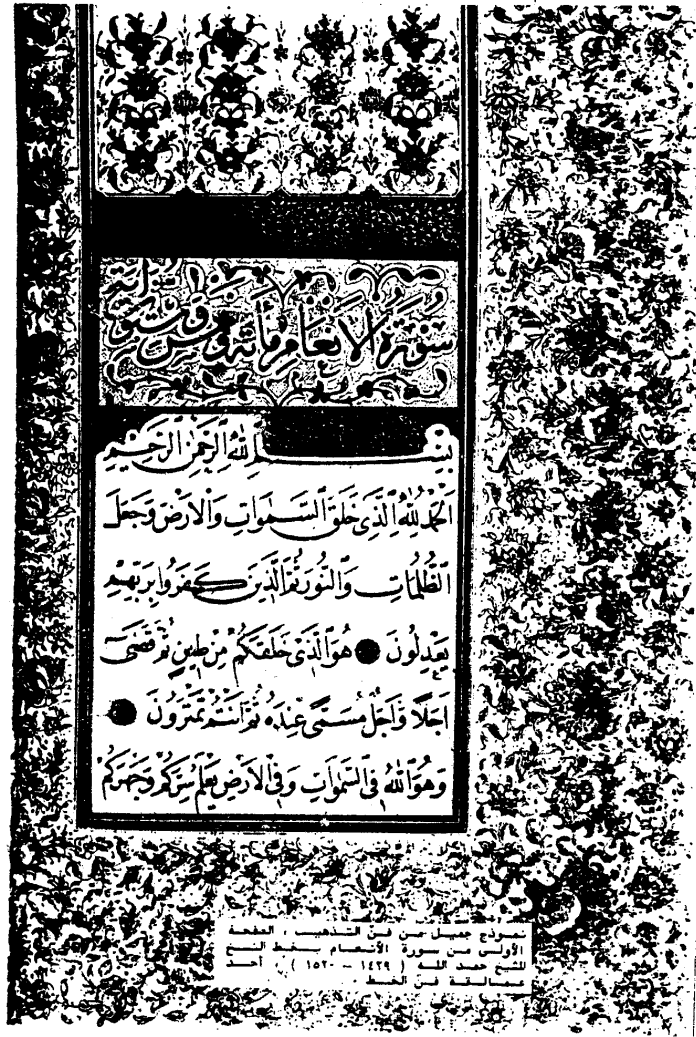 سُورَةُ الْاَنْعَامِ مِائَةٌ وَخَمْسٌ وَسِتُّونَ اٰيَةً
بِسْمِ اللّٰهِ الرَّحْمٰنِ الرَّحِيمِ
اَلْحَمْدُ لِلّٰهِ الَّذِى خَلَقَ السَّمٰوَاتِ وَالْاَرْضَ وَجَعَلَ
الظُّلُمَاتِ وَالنُّورَ ثُمَّ الَّذِينَ كَفَرُوا بِرَبِّهِمْ
يَعْدِلُونَ هُوَ الَّذِى خَلَقَكُمْ مِنْ طِينٍ ثُمَّ قَضٰى
اَجَلًا وَاَجَلٌ مُسَمًّى عِنْدَهُ ثُمَّ اَنْتُمْ تَمْتَرُونَ
وَهُوَ اللّٰهُ فِى السَّمٰوَاتِ وَفِى الْاَرْضِ يَعْلَمُ سِرَّكُمْ وَجَهْرَكُمْ
نموذج جميل من فن التذهيب ، الصفحة
الأولى من سورة الأنعام بخط النسخ
للشيخ حمد الله ( ١٤٢٩ - ١٥٢٠ ) ، أحد
عمالقة فن الخط .